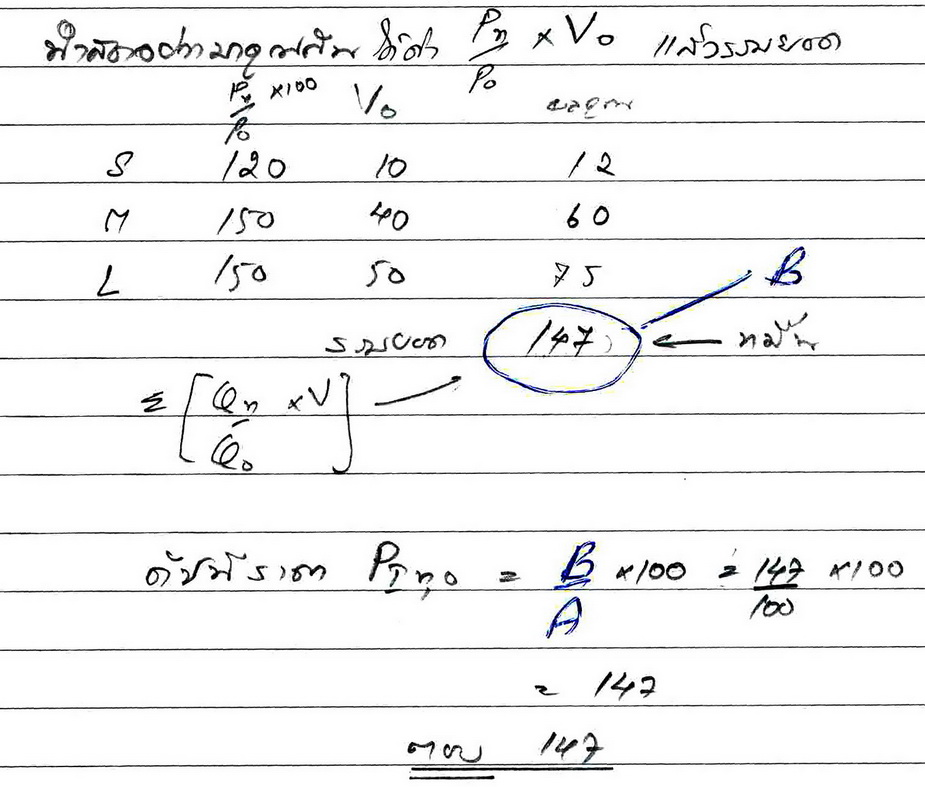 นำสองอย่างมาคูณกัน ได้ค่า Pn/P0 × V0 แล้วรวมยอด
Pn/P0 ×100 V0 ผลคูณ
S 120 10 12
M 150 40 60
L 150 50 75
B
รวมยอด 147 ←
Σ [Qn/Q0 × V]
ดัชนีราคา PIn,0 = B/A ×100 = 147/100 ×100
= 147
ตอบ 147